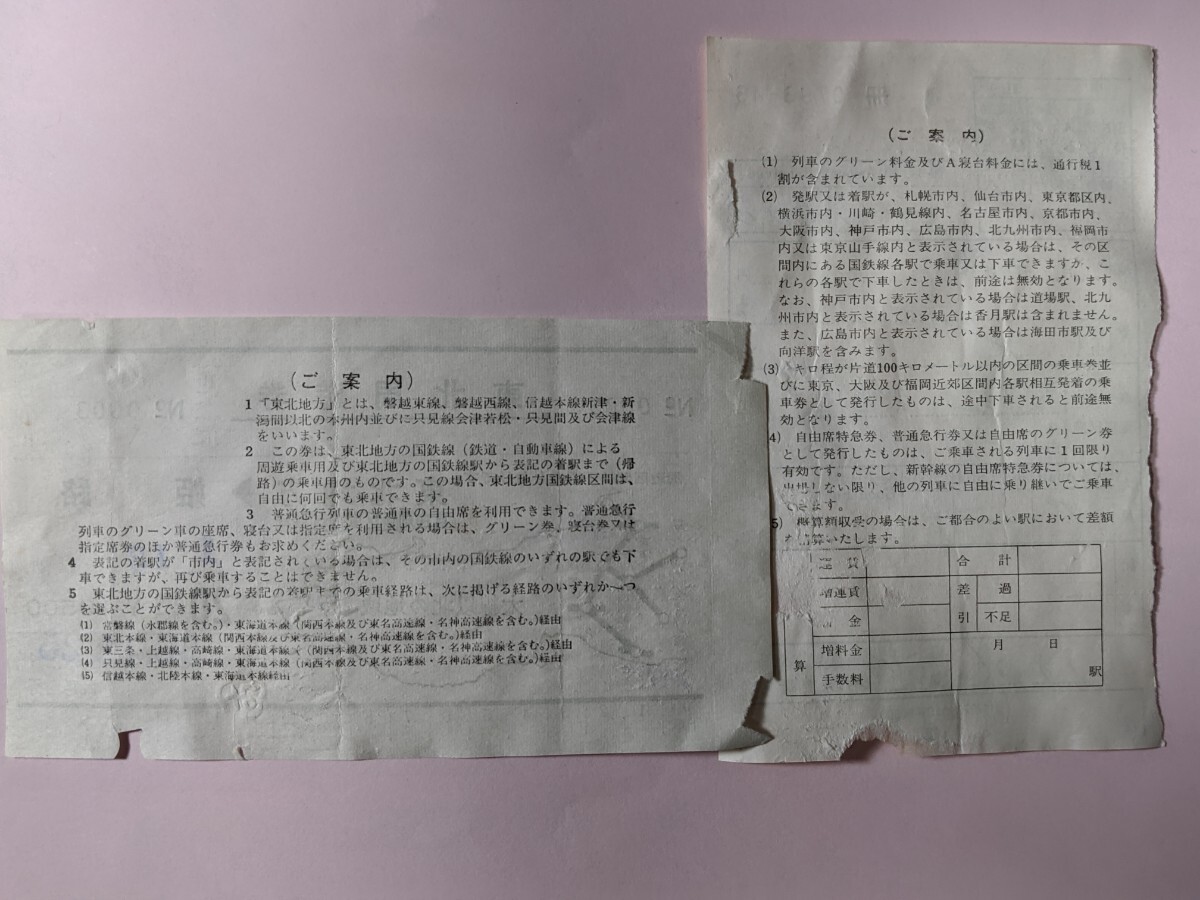 (ご案内)
1 「東北地方」とは、磐越東線、磐越西線、信越本線新津・新
潟間以北の本州内並びに只見線会津若松・只見間及び会津線
をいいます。
2 この券は、東北地方の国鉄線(鉄道・自動車線)による
周遊乗車用及び東北地方の国鉄線駅から表記の着駅まで(帰
路)の乗車用のものです。この場合、東北地方国鉄線区間は、
自由に何回でも乗車できます。
3 普通急行列車の普通車の自由席を利用できます。普通急行
列車のグリーン車の座席、寝台又は指定席を利用される場合は、グリーン券、寝台券又は
指定席券のほか普通急行券もお求めください。
4 表記の着駅が「市内」と表記されている場合は、その市内の国鉄線のいずれの駅でも下
車できますが、再び乗車することはできません。
5 東北地方の国鉄線駅から表記の着駅までの乗車経路は、次に掲げる経路のいずれか一つ
を選ぶことができます。
(1) 常磐線(水郡線を含む。)・東海道本線(関西本線及び東名高速線・名神高速線を含む。)経由
(2) 東北本線・東海道本線(関西本線及び東名高速線・名神高速線を含む。)経由
(3) 東三条・上越線・高崎線・東海道本線(関西本線及び東名高速線・名神高速線を含む。)経由
(4) 只見線・上越線・高崎線・東海道本線(関西本線及び東名高速線・名神高速線を含む。)経由
(5) 信越本線・北陸本線・東海道本線経由
(ご案内)
(1) 列車のグリーン料金及びA寝台料金には、通行税1
割が含まれています。
(2) 発駅又は着駅が、札幌市内、仙台市内、東京都区内、
横浜市内・川崎・鶴見線内、名古屋市内、京都市内、
大阪市内、神戸市内、広島市内、北九州市内、福岡市
内又は東京山手線内と表示されている場合は、その区
間内にある国鉄線各駅で乗車又は下車できますが、こ
れらの各駅で下車したときは、前途は無効となります。
なお、神戸市内と表示されている場合は道場駅、北九
州市内と表示されている場合は香月駅は含まれません。
また、広島市内と表示されている場合は海田市駅及び
向洋駅を含みます。
(3) キロ程が片道100キロメートル以内の区間の乗車券並
びに東京、大阪及び福岡近郊区間内各駅相互発着の乗
車券として発行したものは、途中下車されると前途無
効となります。
4) 自由席特急券、普通急行券又は自由席のグリーン券
として発行したものは、ご乗車される列車に1回限り
有効です。ただし、新幹線の自由席特急券については、
出場しない限り、他の列車に自由に乗り継いでご乗車
できます。
5) 概算額収受の場合は、ご都合のよい駅において差額
を精算いたします。
運賃 合計
増運賃 差 過
金 引 不足
算 増料金 月 日
手数料 駅